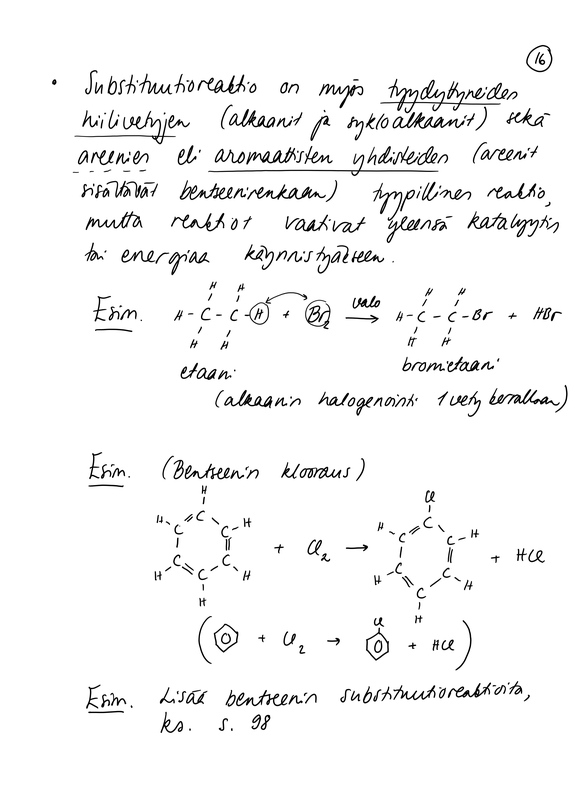 16
• Substituutioreaktio on myös tyydyttyneiden
hiilivetyjen (alkaanit ja sykloalkaanit) sekä
areenien eli aromaattisten yhdisteiden (areenit
sisältävät bentseenirenkaan) tyypillinen reaktio,
mutta reaktiot vaativat yleensä katalyytin
tai energiaa käynnistyäkseen.
H H H H
Esim. H - C - C - H + Br2 valo → H - C - C - Br + HBr
H H H H
etaani bromietaani
(alkaanin halogenointi 1 vety kerrallaan)
Esim. (Bentseenin klooraus)
H Cl
H C H H C H
C C C C
+ Cl2 → + HCl
C C C C
H C H H C H
H H
( + Cl2 → Cl + HCl )
Esim. Lisää bentseenin substituutioreaktioita,
ks. s. 98